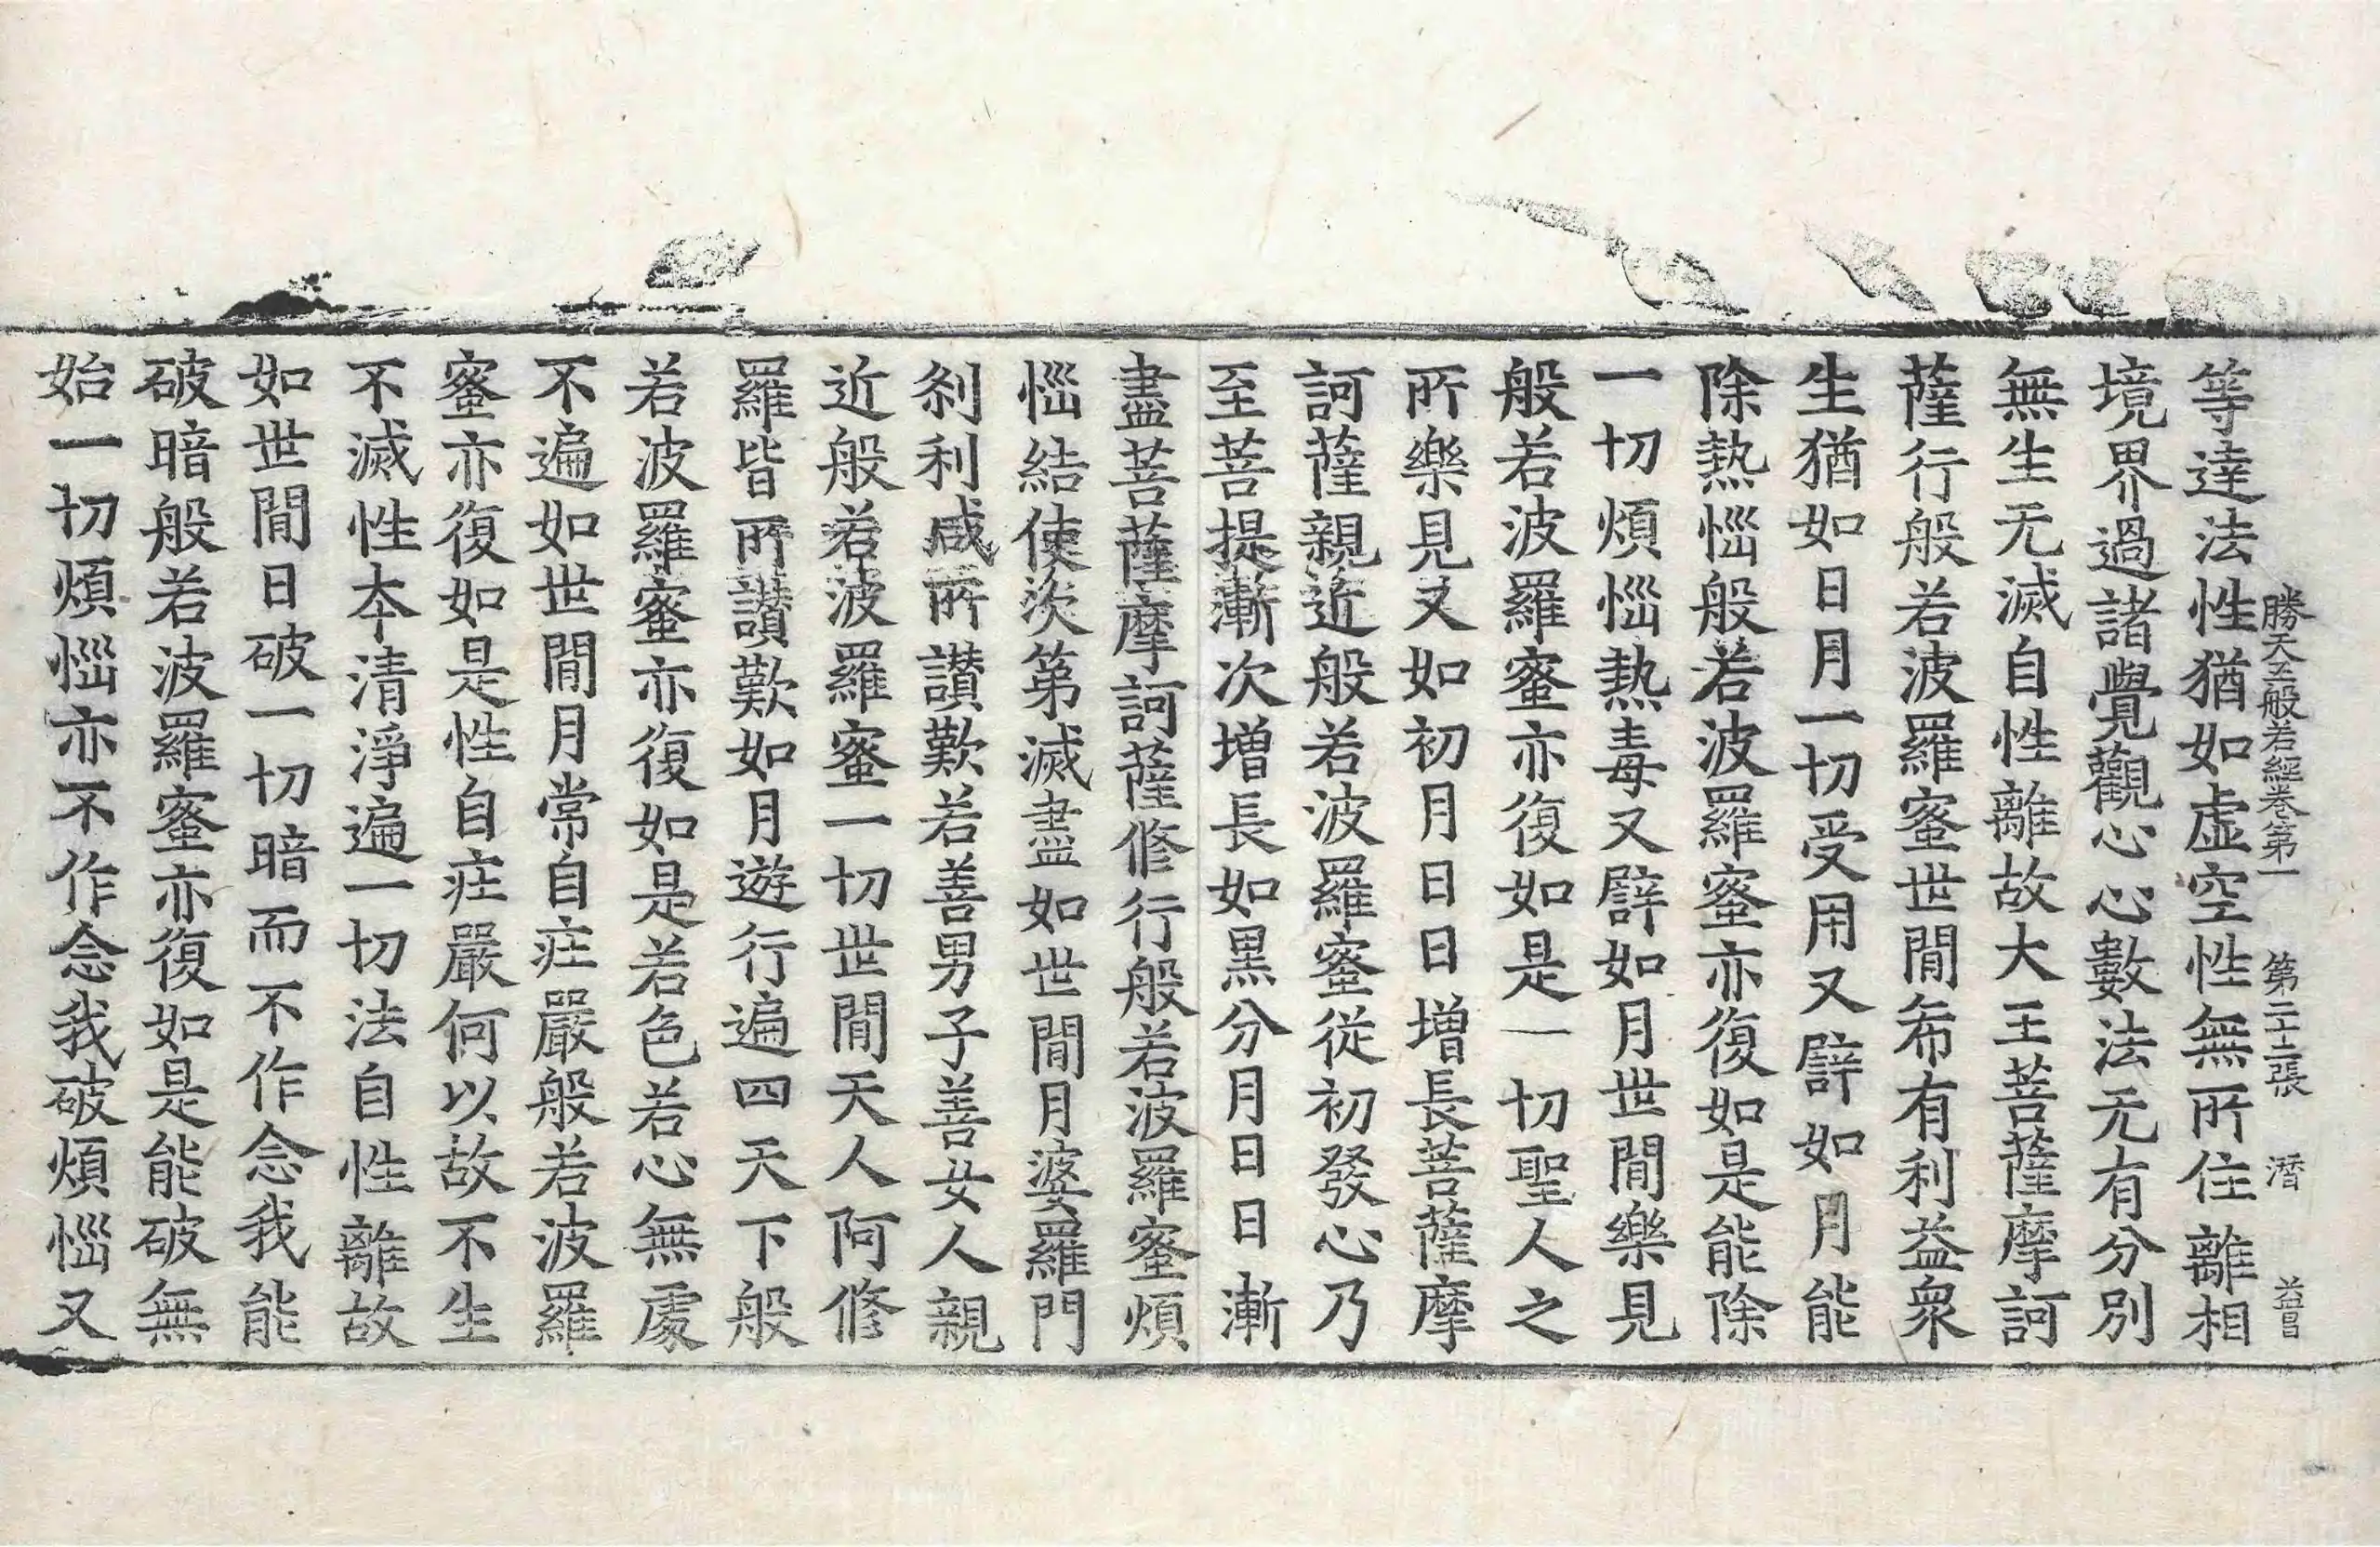 勝天王般若經卷第一 第二十二張 潛 益昌
等達法性猶如虛空性無所住離相
境界過諸覺觀心心數法无有分別
無生无滅自性離故大王菩薩摩訶
薩行般若波羅蜜世間希有利益衆
生猶如日月一切受用又譬如月能
除熱惱般若波羅蜜亦復如是能除
一切煩惱熱毒又譬如月世間樂見
般若波羅蜜亦復如是一切聖人之
所樂見又如初月日日增長菩薩摩
訶薩親近般若波羅蜜從初發心乃
至菩提漸次增長如黑分月日日漸
盡菩薩摩訶薩修行般若波羅蜜煩
惱結使次第滅盡如世間月婆羅門
刹利咸所讃歎若善男子善女人親
近般若波羅蜜一切世間天人阿修
羅皆所讃歎如月遊行遍四天下般
若波羅蜜亦復如是若色若心無處
不遍如世間月常自庄嚴般若波羅
蜜亦復如是性自庄嚴何以故不生
不滅性本清淨遍一切法自性離故
如世間日破一切暗而不作念我能
破暗般若波羅蜜亦復如是能破無
始一切煩惱亦不作念我破煩惱又